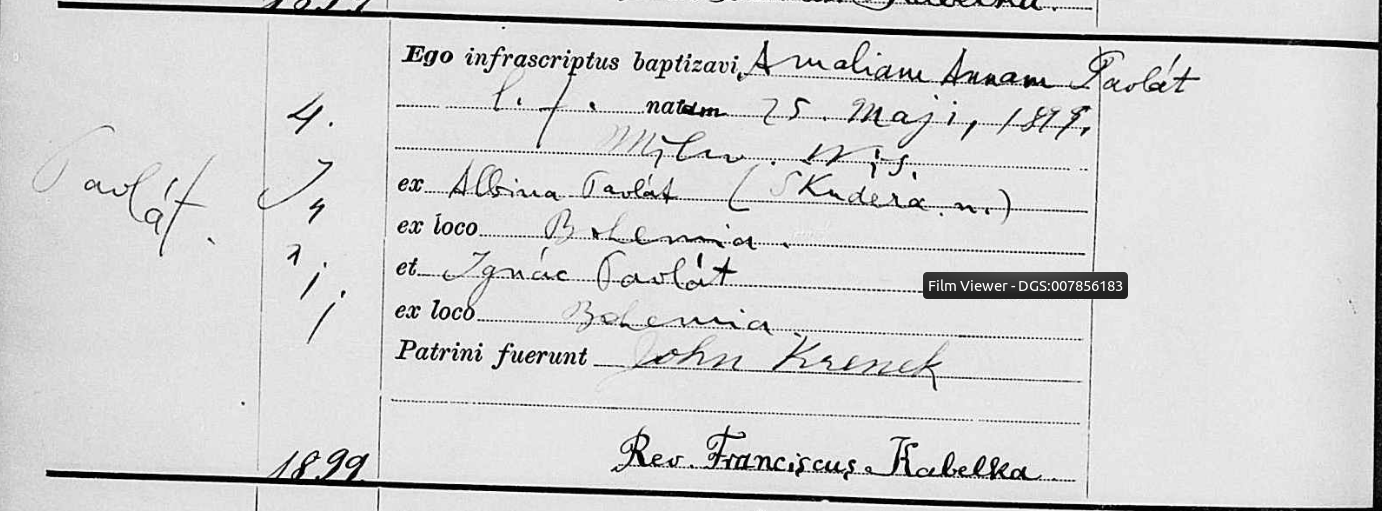 Ego infrascriptus baptizavi Amaliam Annam Pavlát
l. f. natam 25. Maji, 1899,
Milw. Wis.
ex Albina Pavlát (Skudera. n.)
ex loco Bohemia.
et Ignác Pavlát
ex loco Bohemia
Patrini fuerunt John Krenek
Rev. Franciscus Kabelka
Pavlát.
4.
Juni
1899
Film Viewer - DGS:007856183